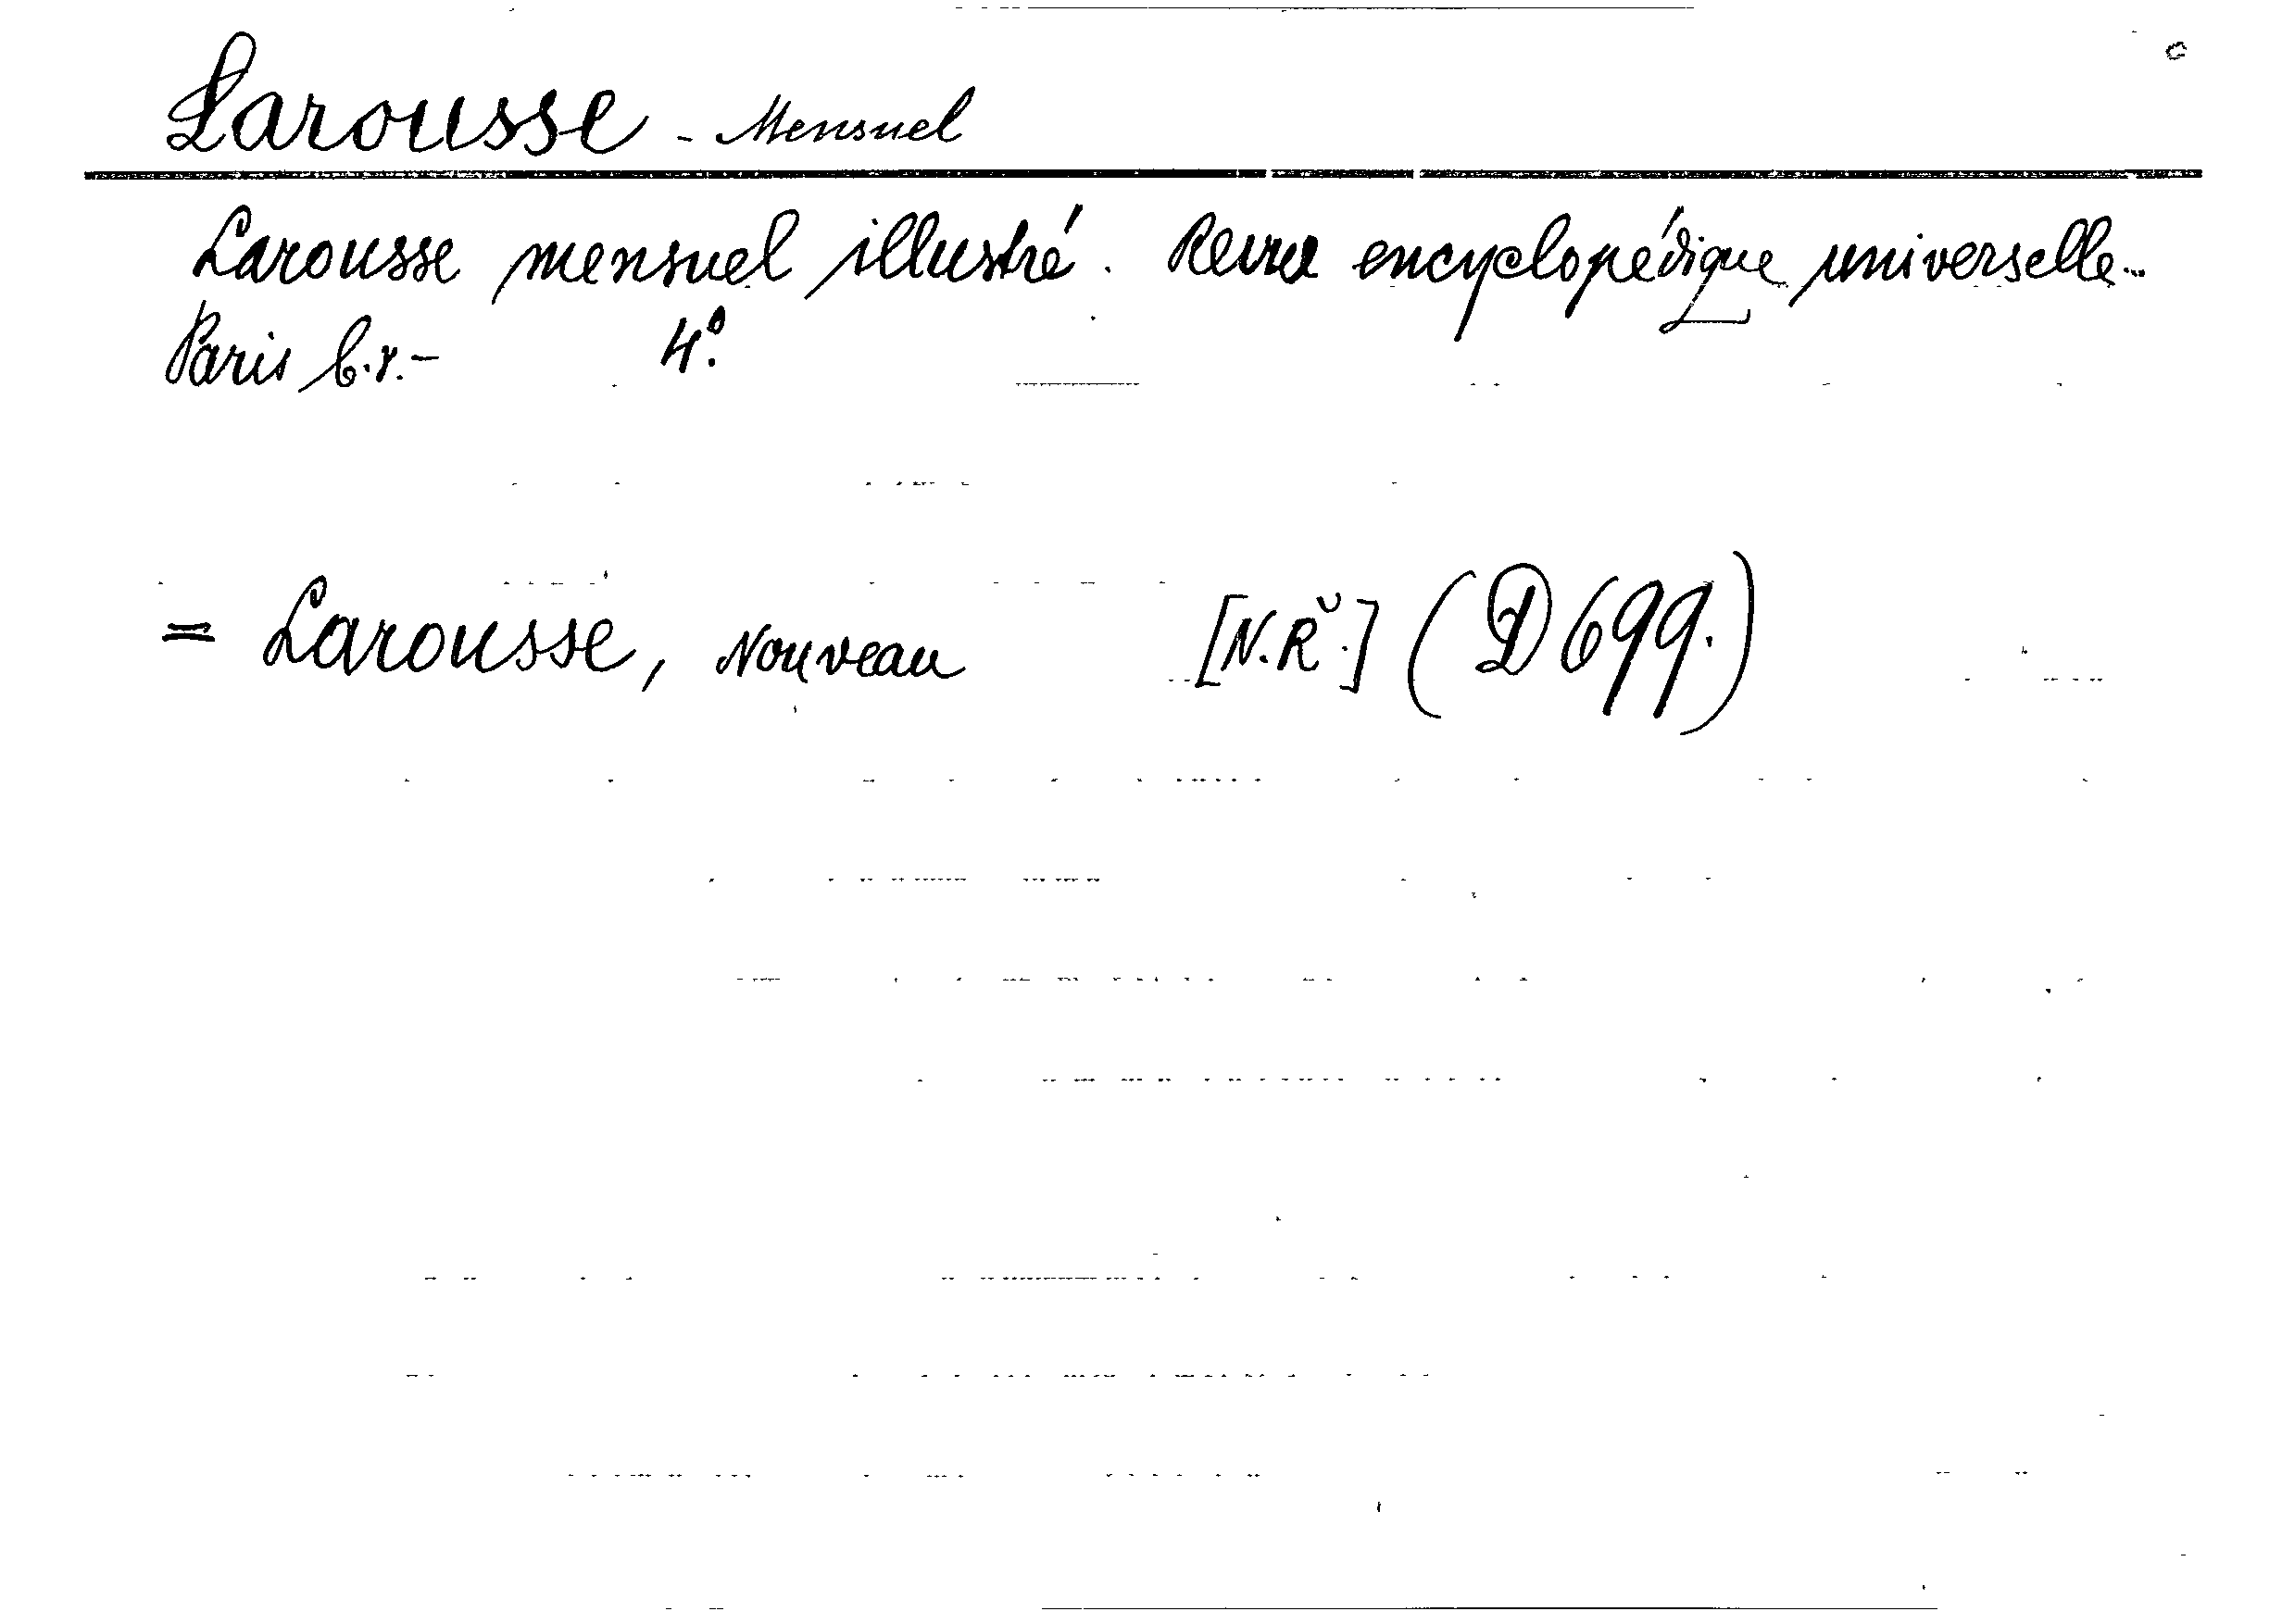 Larousse - Mensuel
Larousse mensuel illustré. Revue encyclopédique universelle...
Paris b.r.- 4°.
= Larousse, Nouveau [N.Ř.] (D 699.)